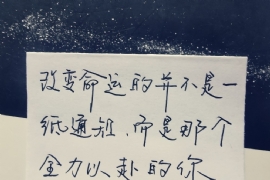 改变命运的并不是一
纸通知，而是那个
全力以赴的你